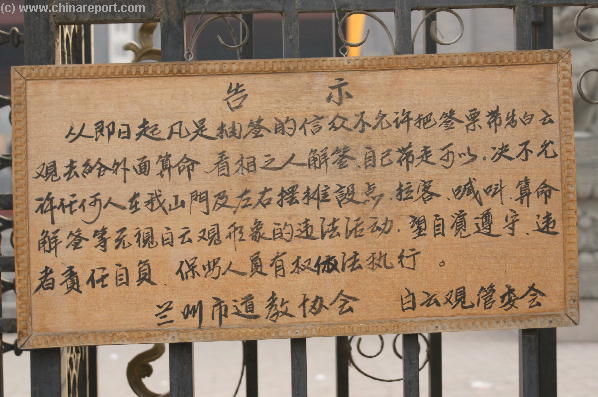 (c) www.chinareport.com
告 示
从即日起凡是抽签的信众不允许把签票带出白云
观去给外面算命、看相之人解签、自己带走可以、决不允
许任何人在我山門及左右摆摊設点、拉客、喊叫、算命
解签等无视白云观形象的违法活动、望自覚遵守、违
者責任自負、保安人员有权依法执行。
兰州市道教协会 白云观管委会